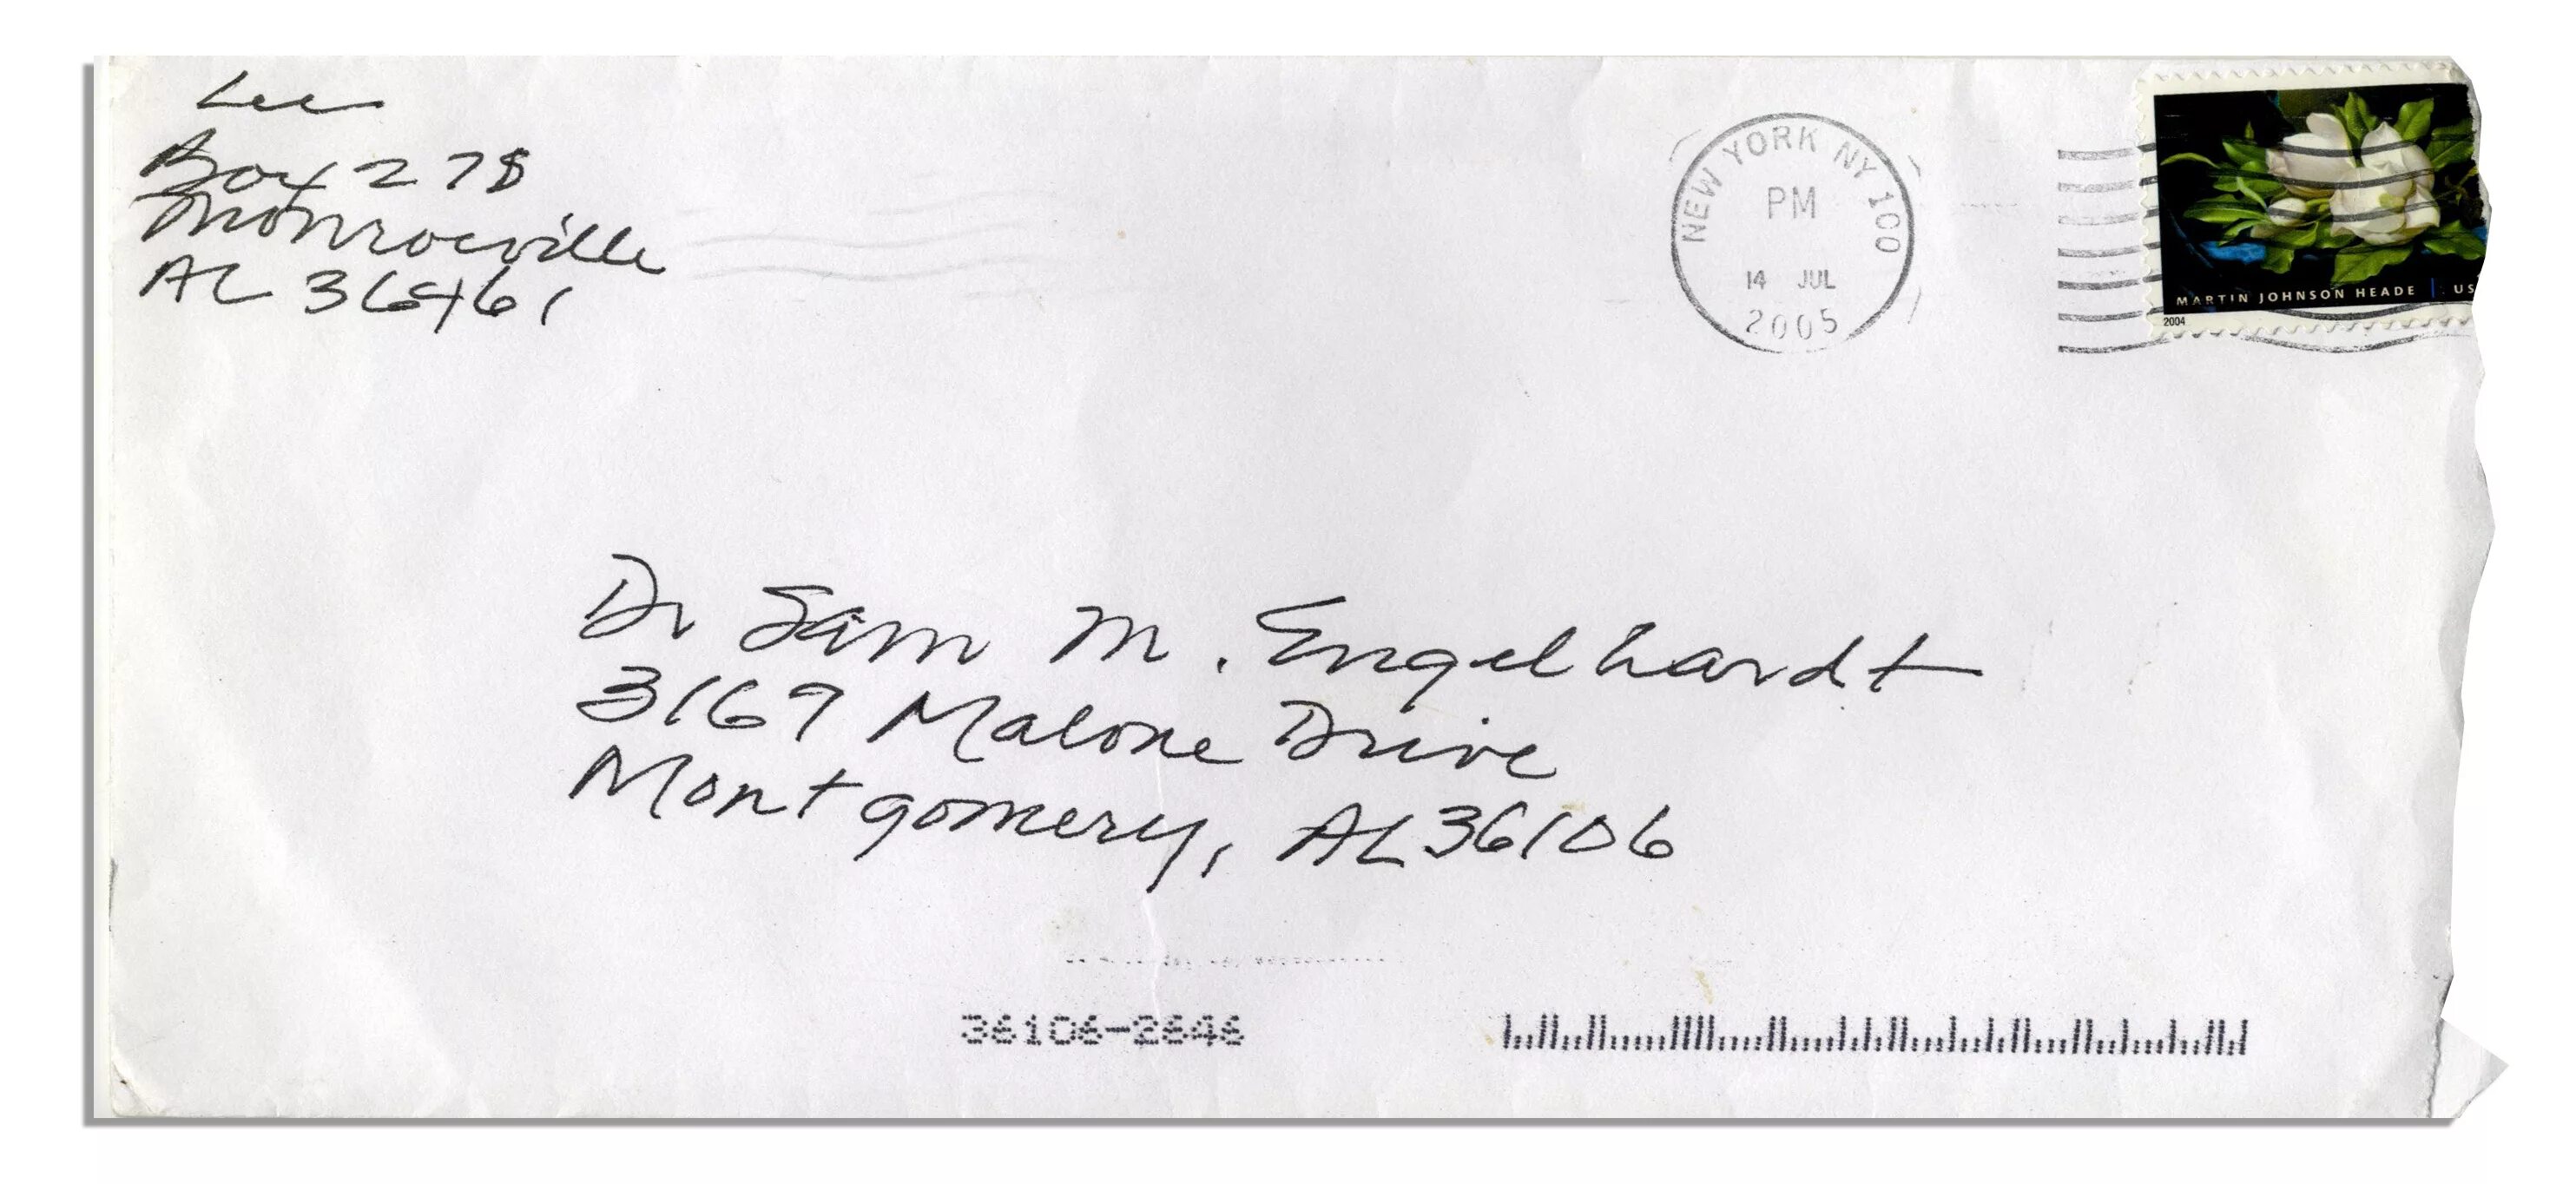 Lee
Box 278
Monroeville
AL 36461
NEW YORK NY 100
PM
14 JUL
2005
MARTIN JOHNSON HEADE | US
2004
Dr Sam M. Engelhardt
3169 Malone Drive
Montgomery, AL 36106
36106-2646